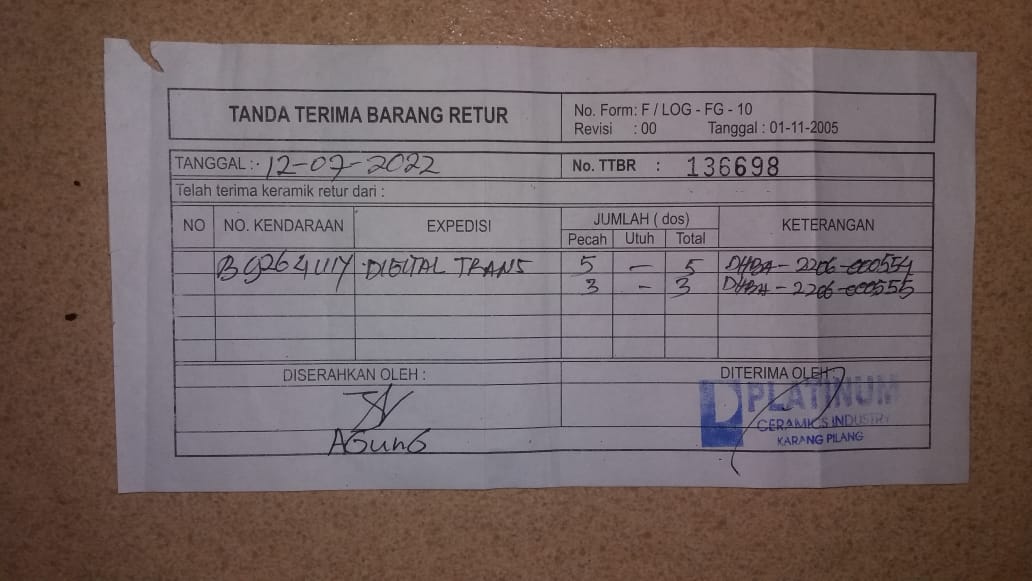 TANDA TERIMA BARANG RETUR
No. Form: F / LOG - FG - 10
Revisi : 00 Tanggal : 01-11-2005
TANGGAL : 12-07-2022
No. TTBR : 136698
Telah terima keramik retur dari :
NO NO. KENDARAAN EXPEDISI JUMLAH ( dos) KETERANGAN
Pecah Utuh Total
DIGITAL TRANS 5 - 5 DHBA - 2206 - 000554
3 - 3 DHBA - 2206 - 000555
DISERAHKAN OLEH :
DITERIMA OLEH :
AGUNG
PLATINUM
CERAMICS INDUSTRY
KARANG PILANG